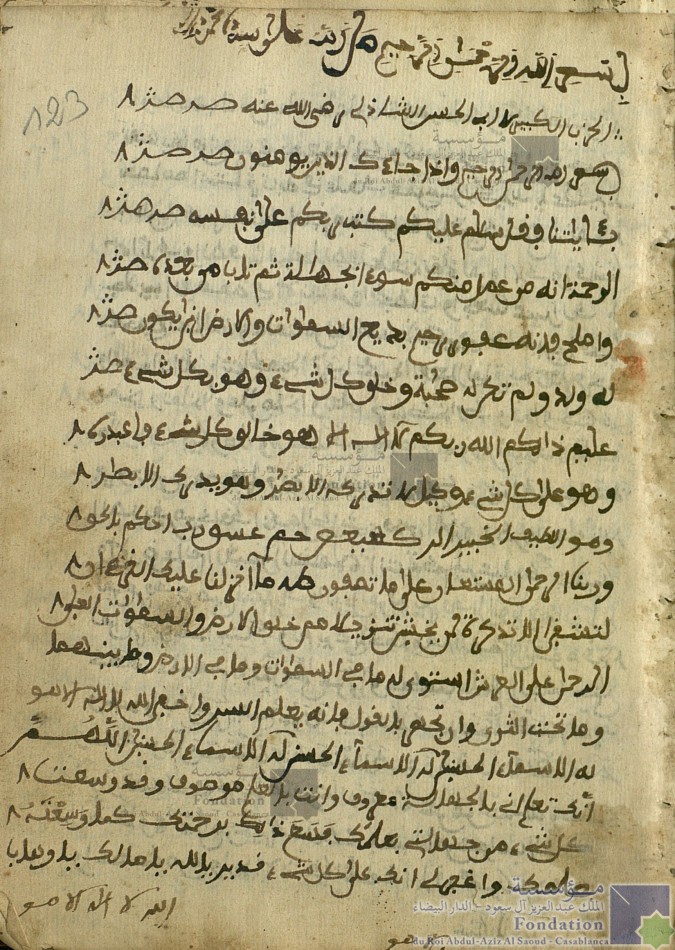 بسم الله الرحمن الرحيم صلى الله على سيدنا محمد
الحزب الكبير لابي الحسن الشاذلي رضي الله عنه
بسم الله الرحمن الرحيم واذا جاءك الذين يومنون
بئاياتنا فقل سلم عليكم كتب ربكم على نفسه
الرحمة انه من عمل منكم سوءا بجهالة ثم تاب من بعده
واصلح فانه غفور رحيم بديع السموات والارض انى يكون
له ولد ولم تكن له صحبة وخلق كل شيء وهو بكل شيء
عليم ذالكم الله ربكم لا اله الا هو خالق كل شيء فاعبدوه
وهو على كل شيء وكيل لا تدركه الابصر وهو يدرك الابصر
وهو اللطيف الخبير الر كهيعص حم عسق رب احكم بالحق
وربنا الرحمن المستعان على ما تصفون طه ما انزلنا عليك القرءان
لتشقى الا تذكرة لمن يخشى تنزيلا ممن خلق الارض والسموات العلى
الرحمن على العرش استوى له ما في السموات وما في الارض وما بينهما
وما تحت الثرى وان تجهر بالقول فانه يعلم السر واخفى الله لا اله الا هو
له الاسماء الحسنى له الاسماء الحسنى له الاسماء الحسنى اللهم
انك تعلم اني بالجهالة معروف وانت بالعلم موصوف وقد وسعت
كل شيء من جهالتي بعلمك فسع ذالك برحمتك كما وسعته
بعلمك واغفر لي انك على كل شيء قدير يا الله يا مالك يا وهاب
الله لا اله الا هو
هو
123
مؤسسة
الملك عبد العزيز آل سعود - الدار البيضاء
Fondation
du Roi Abdul-Aziz Al Saoud - Casablanca